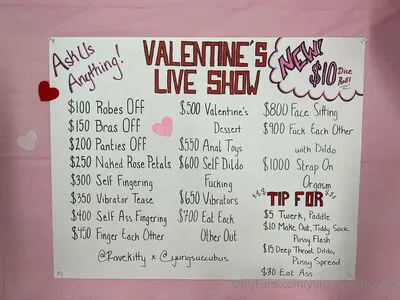 Ask Us
Anything!
VALENTINE'S
LIVE SHOW
NEW!
$10 Dice
Roll!
$100 Robes Off
$150 Bras Off
$200 Panties Off
$250 Naked Rose Petals
$300 Self Fingering
$350 Vibrator Tease
$400 Self Ass Fingering
$450 Finger Each Other
@Ravekitty x @yungsuccubus
$500 Valentine's
Dessert
$550 Anal Toys
$600 Self Dildo
Fucking
$650 Vibrators
$700 Eat Each
Other Out
$800 Face Sitting
$900 Fuck Each Other
with Dildo
$1000 Strap On
Orgasm
TIP FOR
$5 Twerk, Paddle
$10 Make Out, Tiddy Suck
Pussy Flash
$15 Deep Throat Dildo,
Pussy Spread
$30 Eat Ass